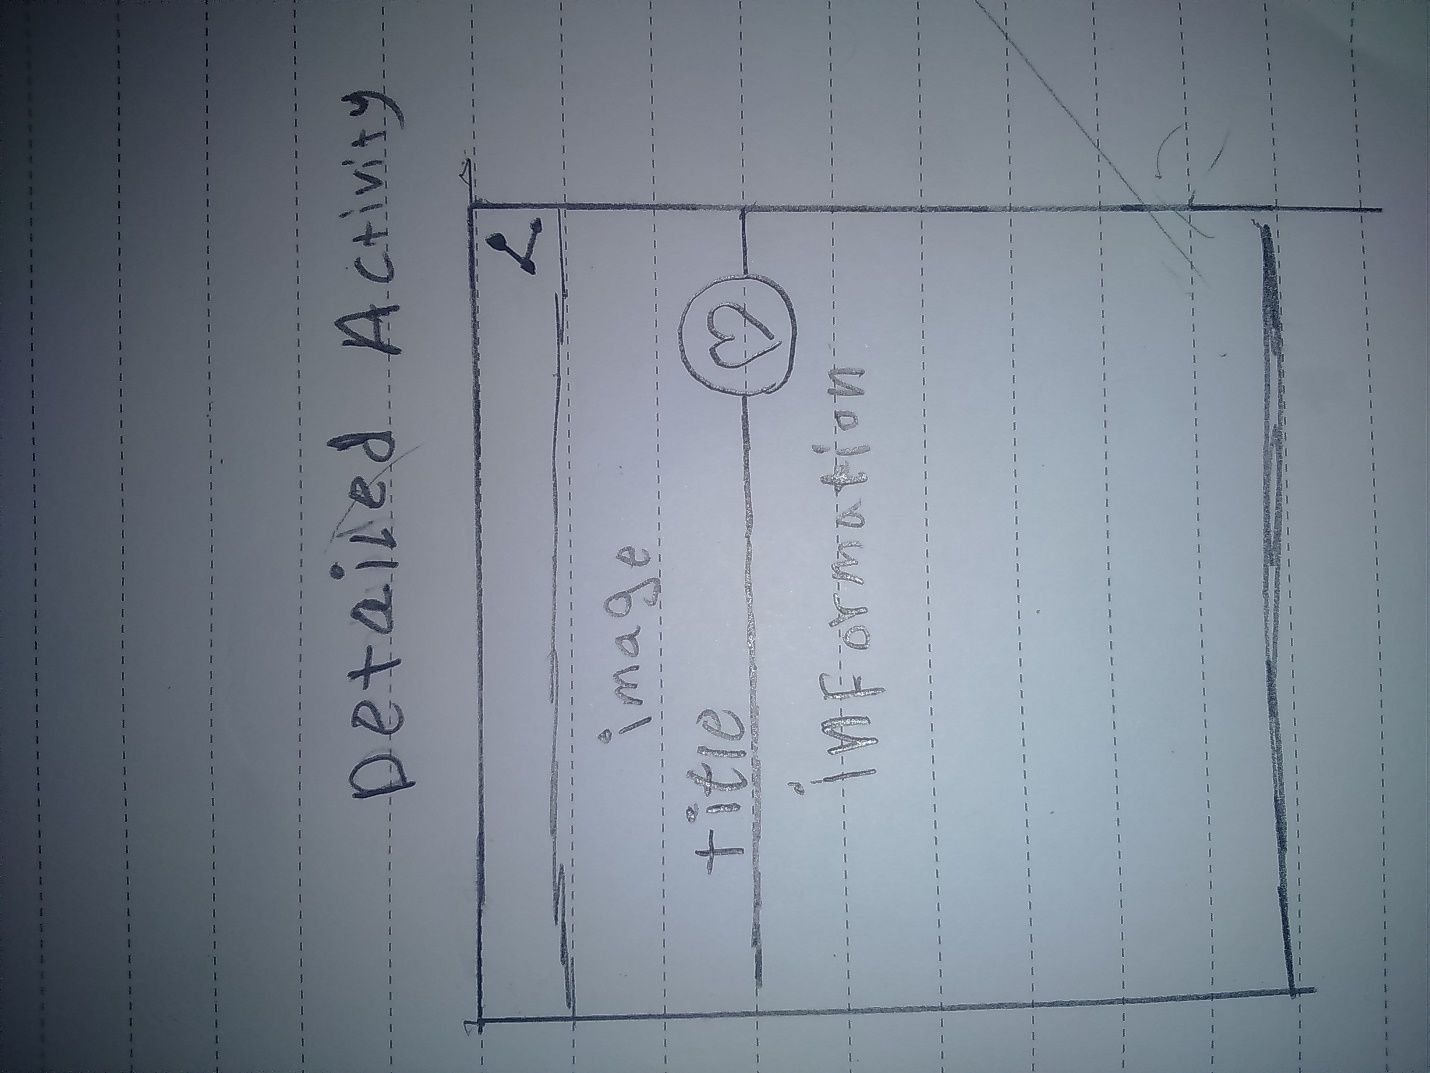 Detailed Activity
image
title
information